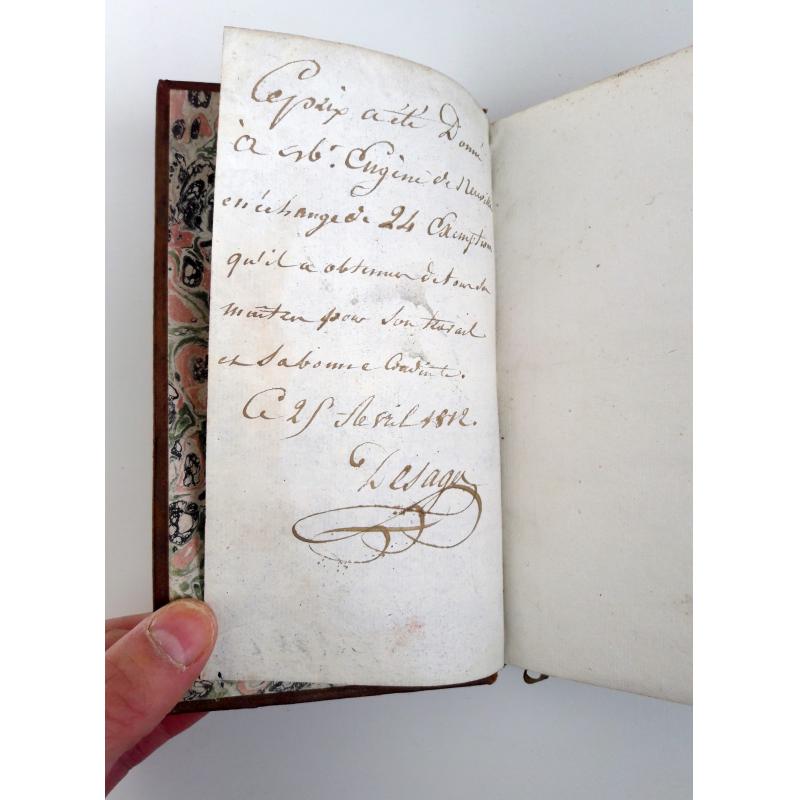 Ce prix a été Donné
à Mr. Eugène de Neuville
en échange de 24 Exemptions
qu'il a obtenues de tous ses
maîtres pour son travail
et sa bonne Conduite.
Ce 25 Avril 1812.
Desage